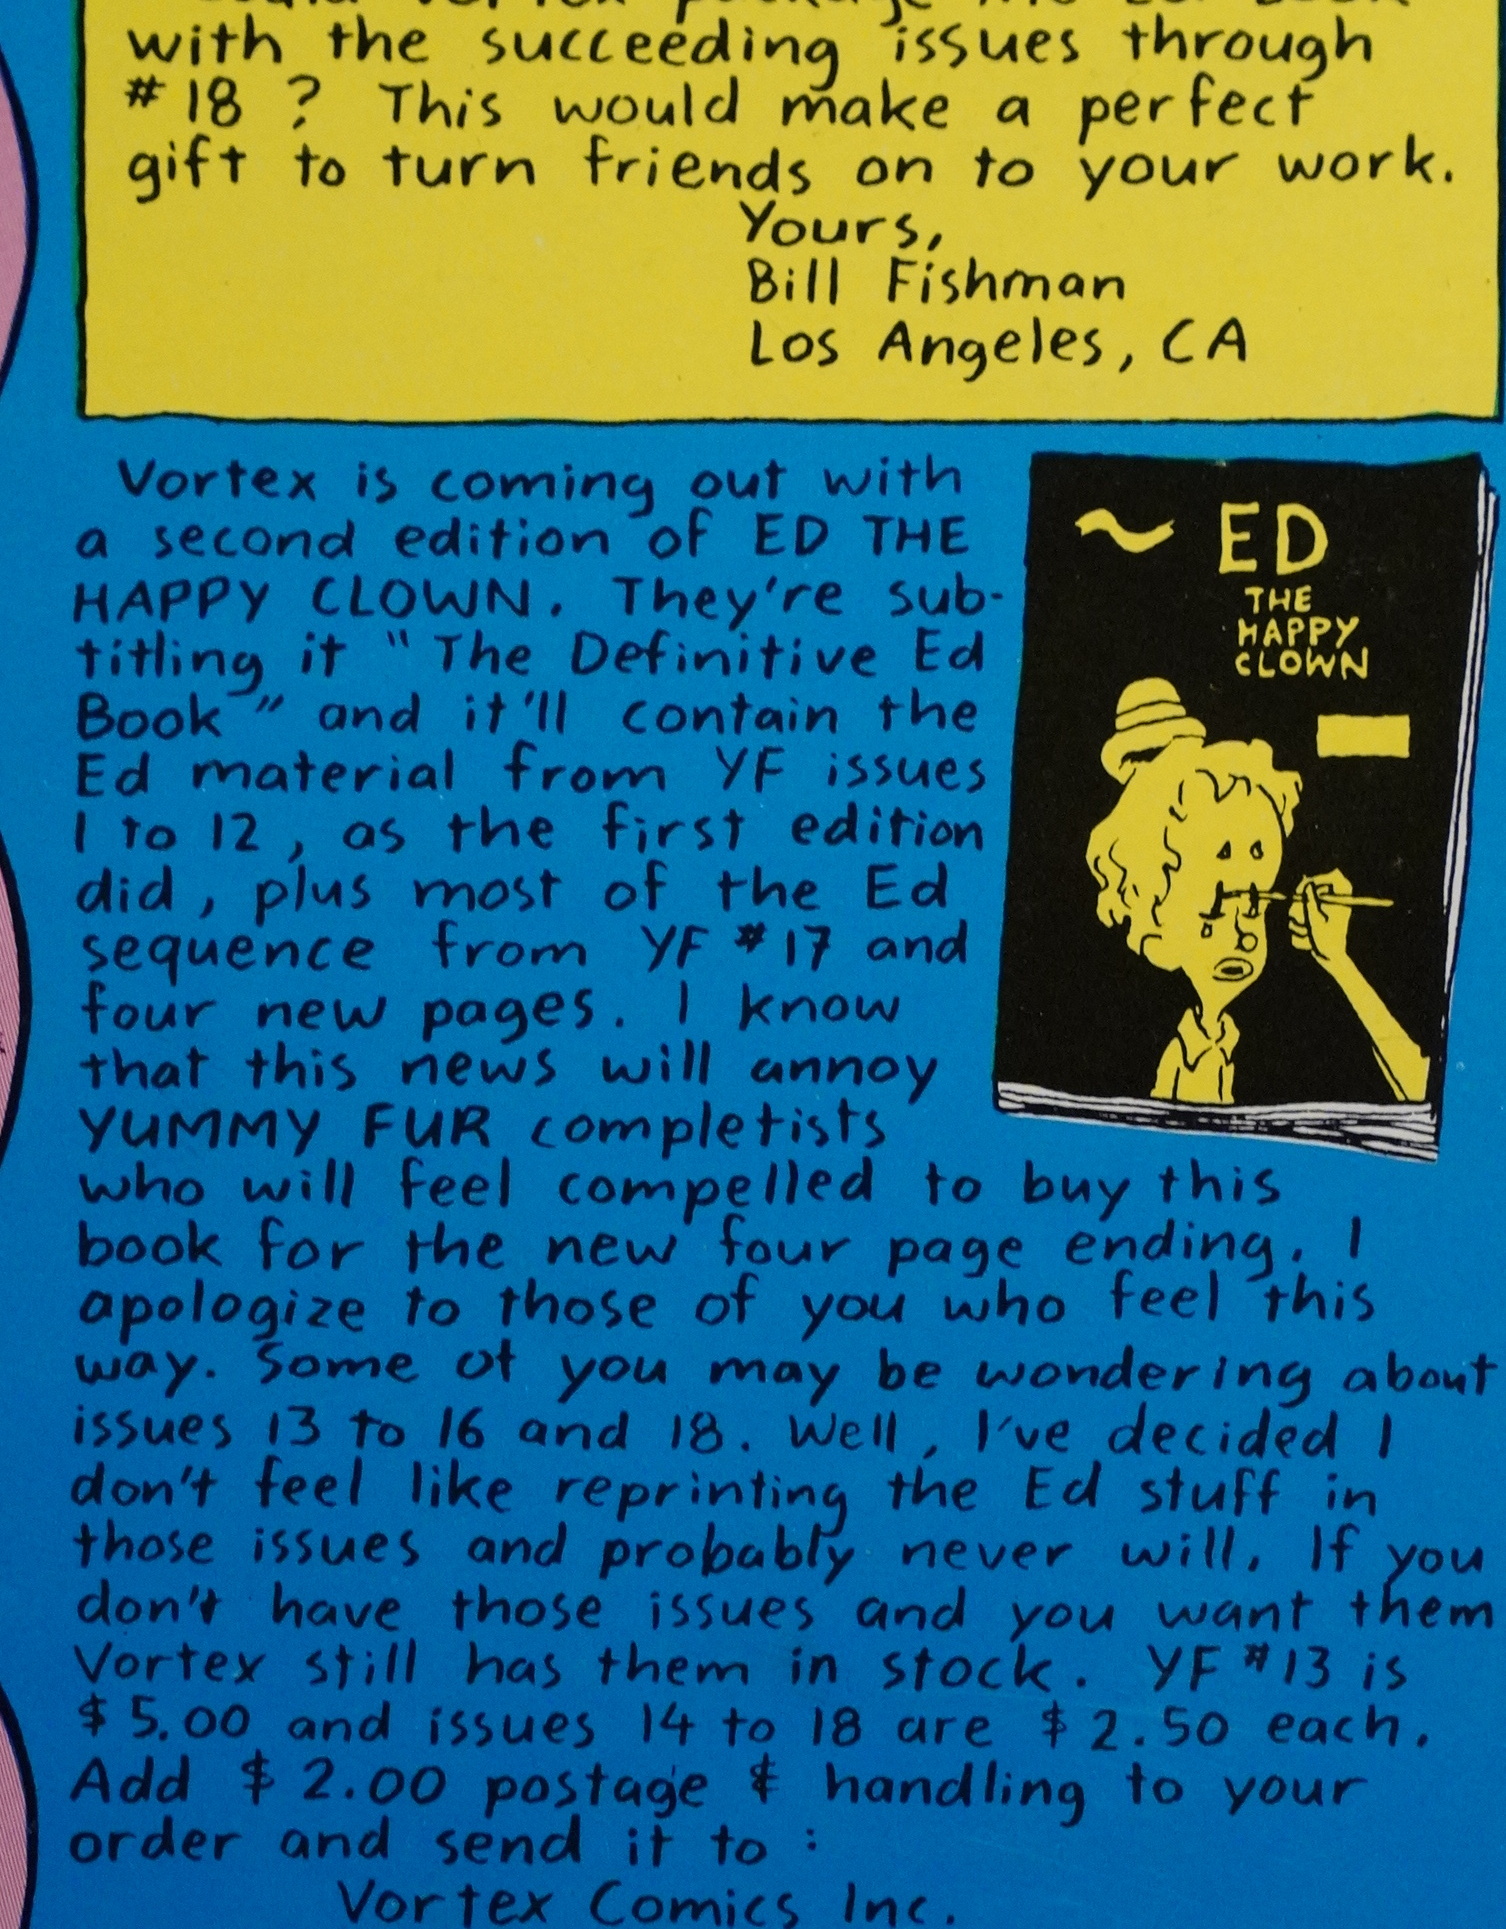 with the succeeding issues through
#18 ? This would make a perfect
gift to turn friends on to your work.
Yours,
Bill Fishman
Los Angeles, CA
Vortex is coming out with
a second edition of ED THE
HAPPY CLOWN. They're sub-
titling it "The Definitive Ed
Book" and it'll contain the
Ed material from YF issues
1 to 12, as the first edition
did, plus most of the Ed
sequence from YF #17 and
four new pages. I know
that this news will annoy
YUMMY FUR completists
who will feel compelled to buy this
book for the new four page ending. I
apologize to those of you who feel this
way. Some of you may be wondering about
issues 13 to 16 and 18. Well, I've decided I
don't feel like reprinting the Ed stuff in
those issues and probably never will. If you
don't have those issues and you want them
Vortex still has them in stock. YF #13 is
$5.00 and issues 14 to 18 are $2.50 each.
Add $2.00 postage & handling to your
order and send it to :
Vortex Comics Inc.
ED
THE
HAPPY
CLOWN